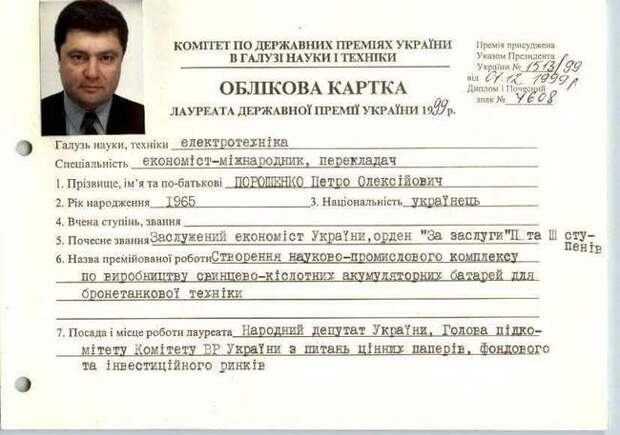 КОМІТЕТ ПО ДЕРЖАВНИХ ПРЕМІЯХ УКРАЇНИ
В ГАЛУЗІ НАУКИ І ТЕХНІКИ
ОБЛІКОВА КАРТКА
ЛАУРЕАТА ДЕРЖАВНОЇ ПРЕМІЇ УКРАЇНИ 1999 р.
Премія присуджена
Указом Президента
України № 1513/99
від 01.12.1999р.
Диплом і Почесний
знак № 4608
Галузь науки, техніки електротехніка
Спеціальність економіст-міжнародник, перекладач
1. Прізвище, ім'я та по-батькові ПОРОШЕНКО Петро Олексійович
2. Рік народження 1965 3. Національність українець
4. Вчена ступінь, звання
5. Почесне звання Заслужений економіст України, орден "За заслуги" ІІ та ІІІ сту-
пенів
6. Назва премійованої роботи Створення науково-промислового комплексу
по виробництву свинцево-кіслотних акумуляторних батарей для
бронетанкової техніки
7. Посада і місце роботи лауреата Народний депутат України, Голова підко-
мітету Комітету ВР України з питань цінних паперів, фондового
та інвестиційного ринків